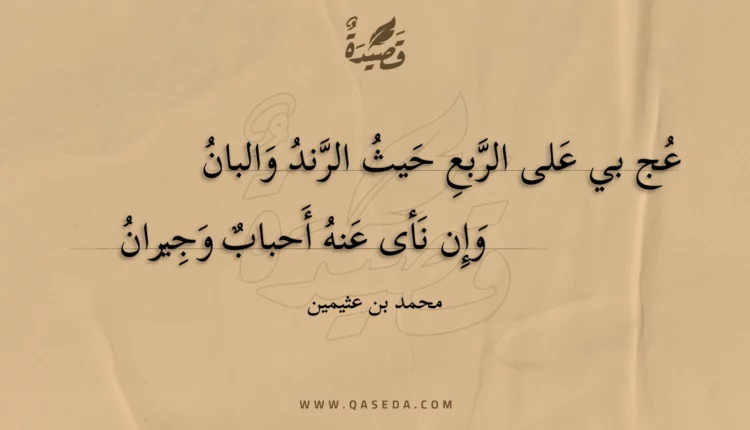 قَصِيْدَةٌ
عُج بي عَلى الرَّبعِ حَيثُ الرَّندُ وَالبانُ
وَإِن نَأى عَنهُ أَحبابٌ وَجِيرانُ
محمد بن عثيمين
WWW.QASEDA.COM